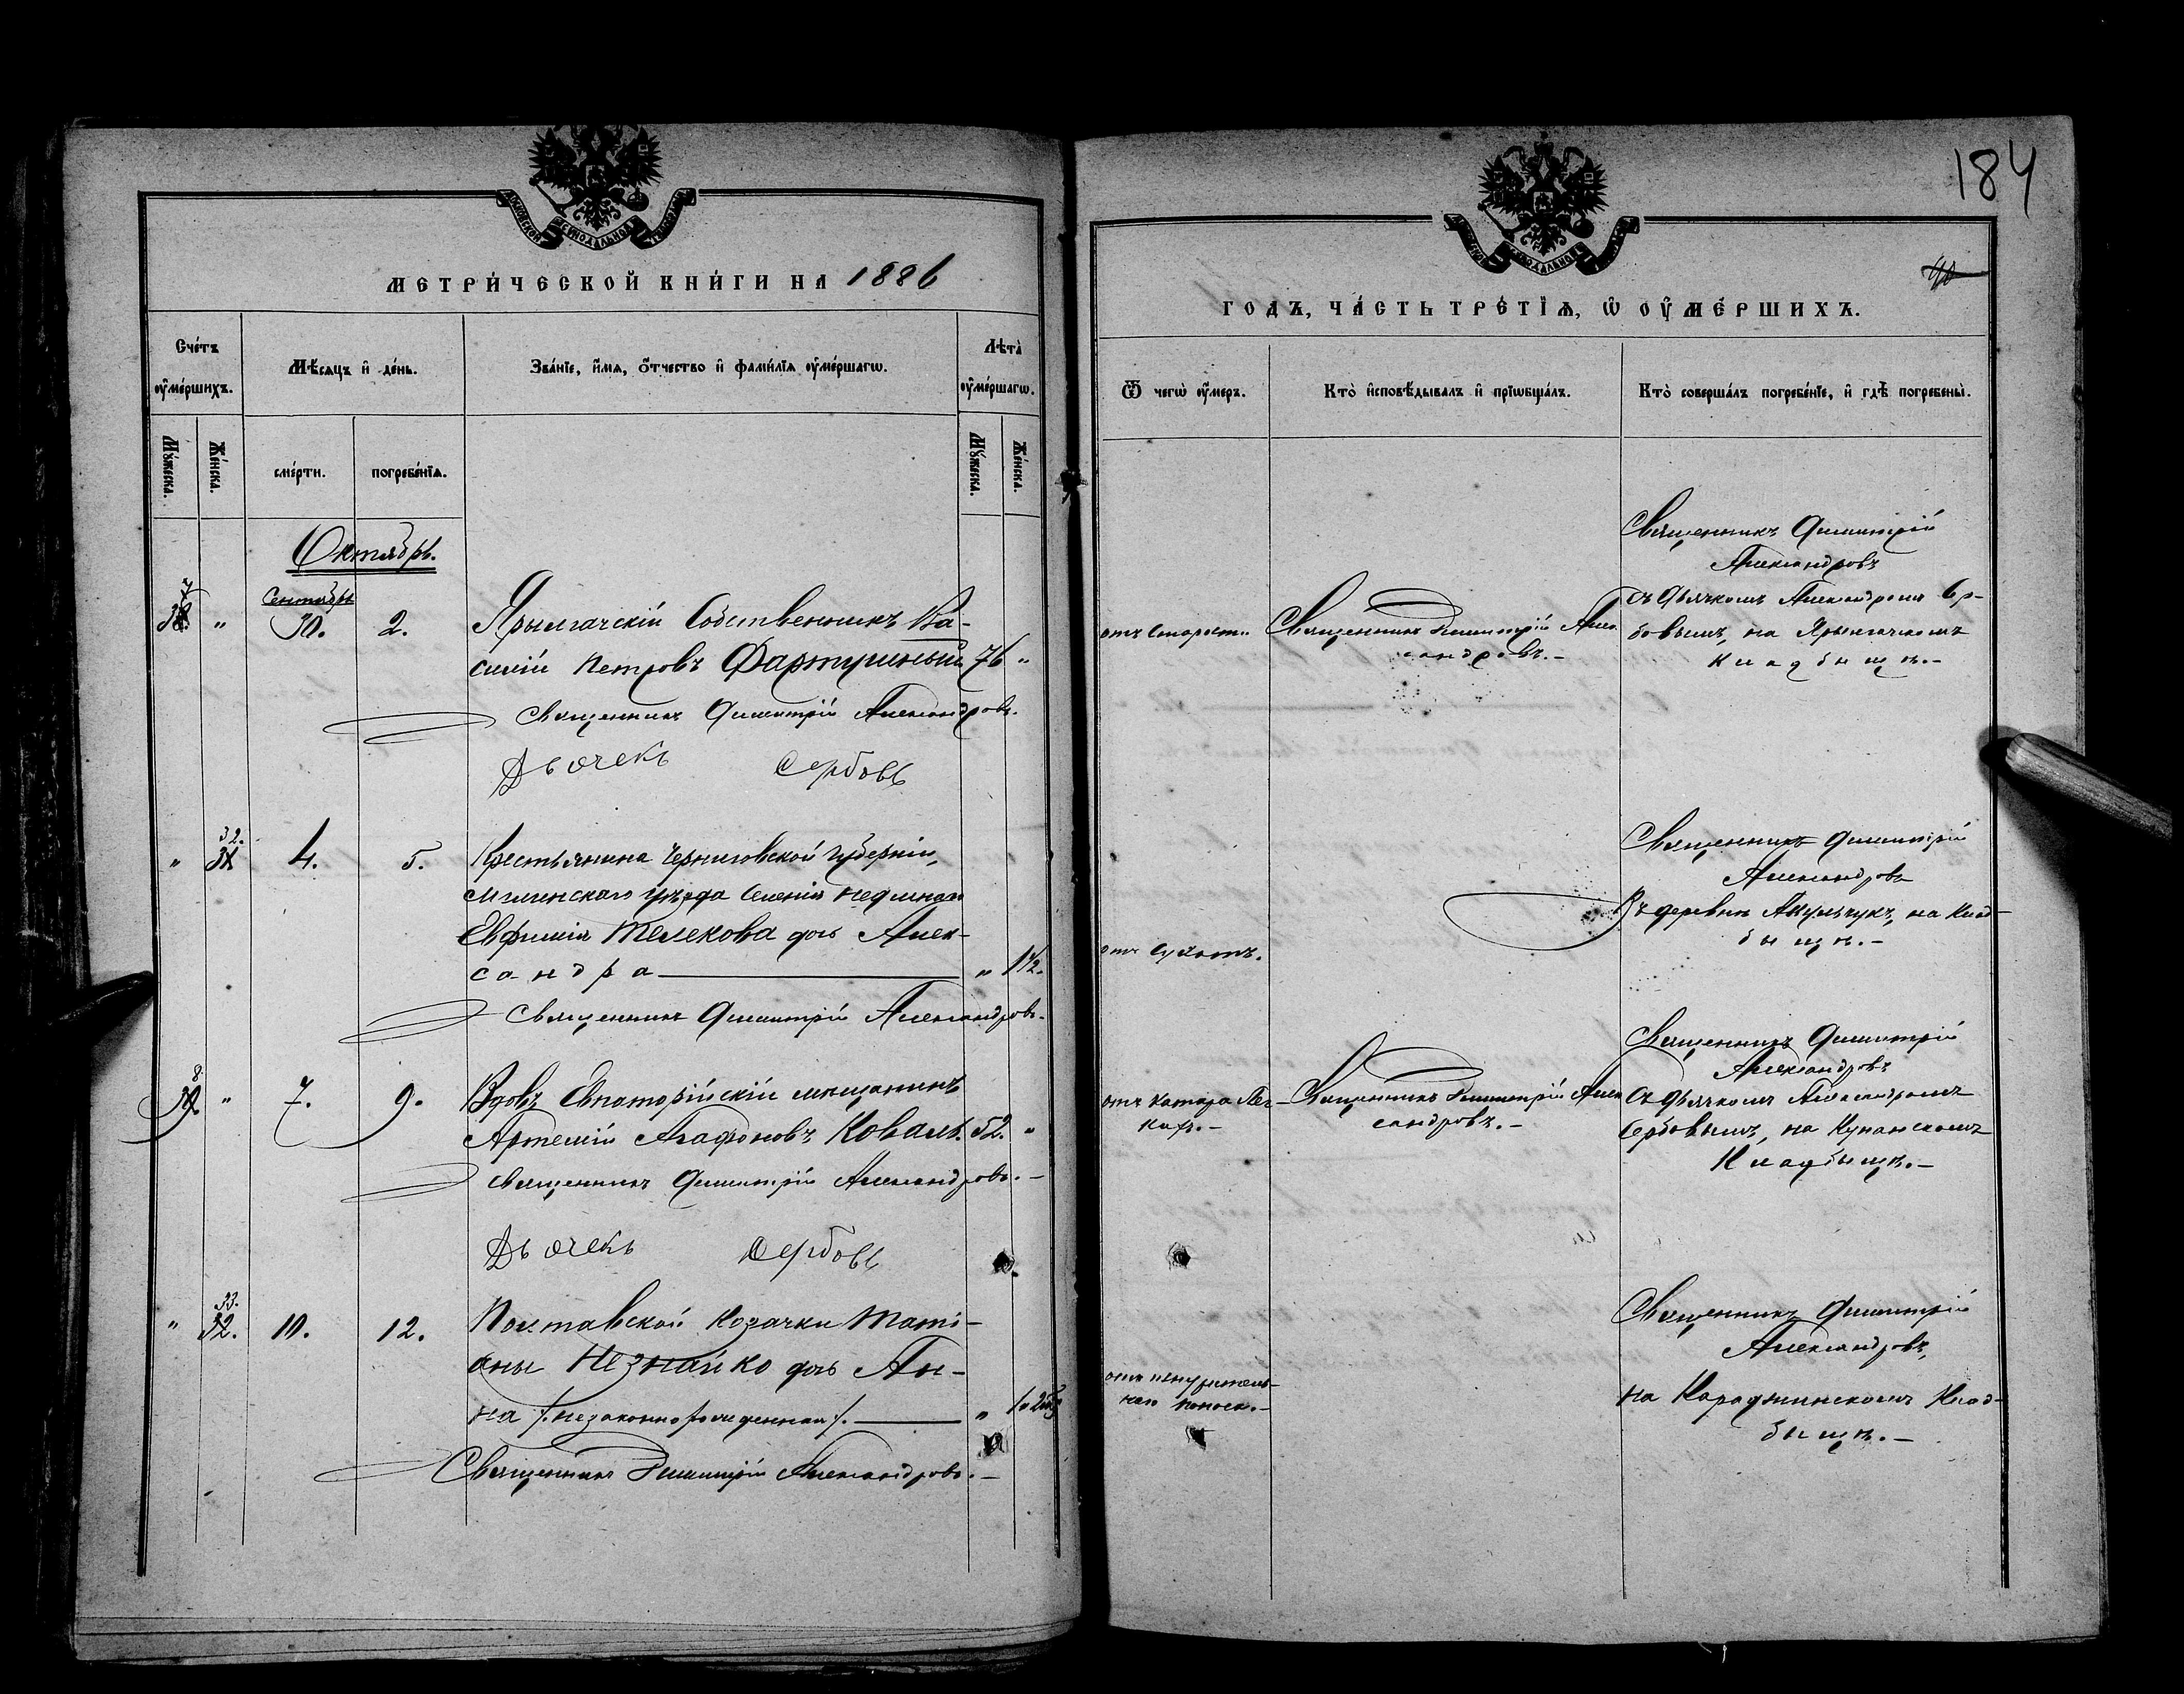 184
40
МЕТРИЧЕСКОЙ КНИГИ НА 1886
ГОДЪ, ЧАСТЬ ТРЕТІѦ, Ѡ ОУМЕРШИХЪ.
Счетъ оумершихъ.
Мѣсяцъ и день.
Званіе, имя, отчество и фамилія оумершагѡ.
Лѣта оумершагѡ.
Ѿ чегѡ оумеръ.
Кто исповѣдывалъ и пріѡбщалъ.
Кто совершалъ погребеніе, и гдѣ погребены.
Мужеска.
Женска.
смерти.
погребенія.
Мужеска.
Женска.
Октябрь.
Сентябрь
30.
2.
Ярылгачскій Собственникъ Ва-
силій Петровъ Фартушный 76 "
Священникъ Димитрій Александровъ.
Дьячекъ Сербовъ
отъ Старости
Священникъ Димитрій Алек
сандровъ.-
Священникъ Димитрій
Александровъ
съ Дьячкомъ Александромъ Сер-
бовымъ, на Ярылгачскомъ
Кладбищѣ.-
"
32.
31
4.
5.
Крестьянина Черниговской губерніи,
Мглинскаго уѣзда Селенія
Евфимія Телекова дочь Алек-
сандра " 1½.
Священникъ Димитрій Александровъ.
отъ Сухотъ.
Священникъ Димитрій
Александровъ
Въ деревнѣ Акульчукъ, на Клад-
бищѣ.-
8.
"
7.
9.
Вдовъ Евпаторійскій мѣщанинъ
Артемій Агафоновъ Коваль. 52. "
Священникъ Димитрій Александровъ.-
Дьячекъ Сербовъ
отъ Катара Лег-
кихъ.-
Священникъ Димитрій Алек
сандровъ.-
Священникъ Димитрій
Александровъ
Съ дьячкомъ Александромъ
Сербовымъ, на Кунанскомъ
Кладбищѣ.-
"
33.
32.
10.
12.
Полтавской Козачки Таті-
аны Незнайко дочь Ан-
на /.незаконнорожденная/. "
Священникъ Димитрій Александровъ.-
отъ изнуритель-
наго поноса.-
Священникъ Димитрій
Александровъ,
на Караджинскомъ Клад-
бищѣ.-